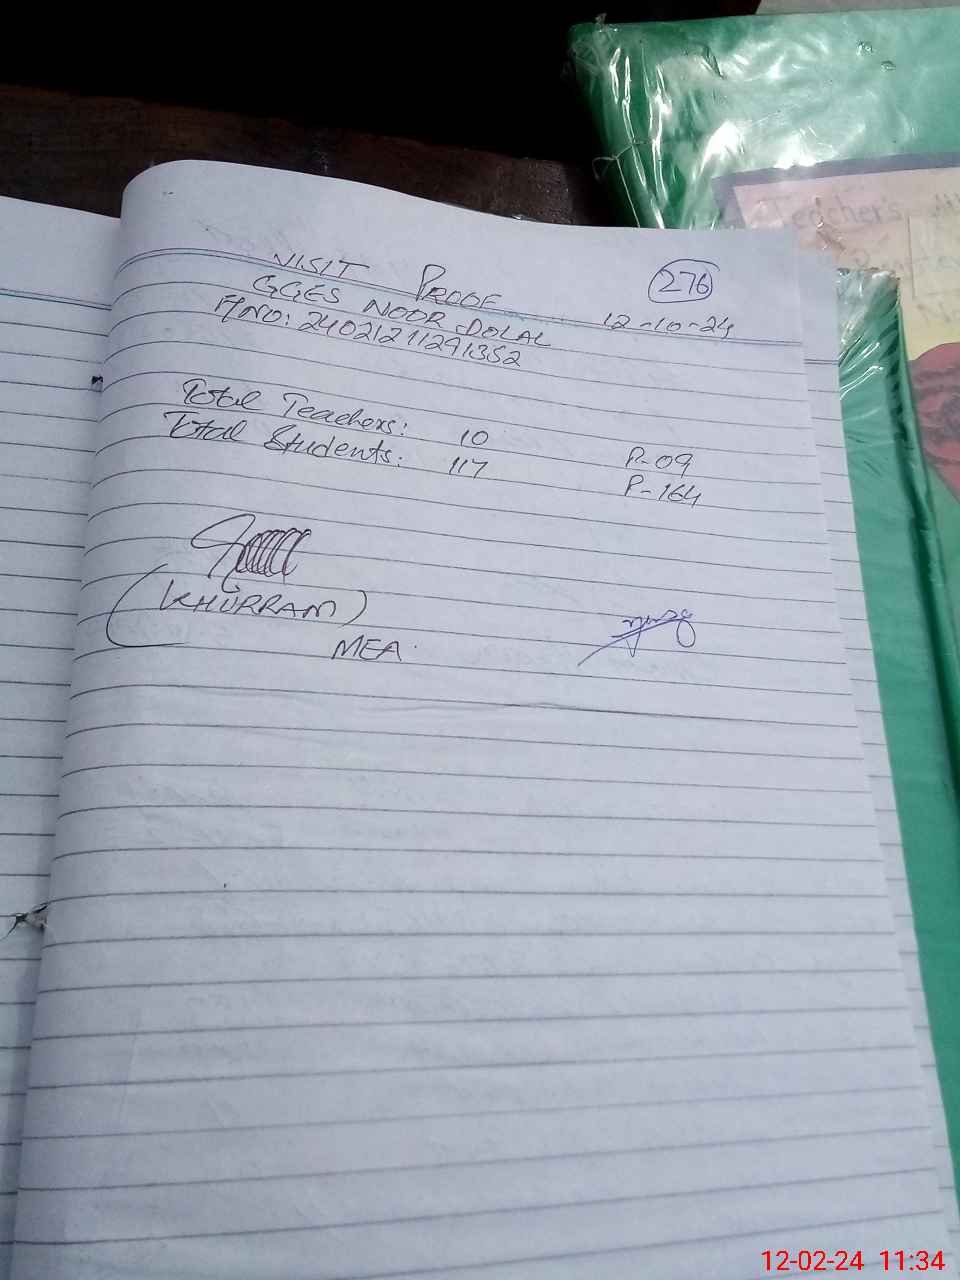 276
VISIT PROOF
12-10-24
GGES NOOR DOLAL
F/NO: 24021211291352
Total Teachers: 10 P-09
Total Students: 117 P-164
(KHURRAM)
MEA
Teacher's
12-02-24 11:34